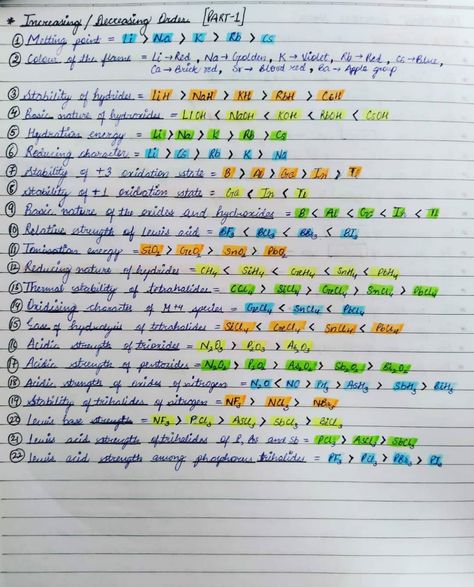 * Increasing / Decreasing Order [PART-1]
① Melting point = Li > Na > K > Rb > Cs
② Colour of the flame = Li → Red, Na → Golden, K → Violet, Rb → Red, Cs → Blue,
Ca → Brick red, Sr → Blood red, Ba → Apple group
③ Stability of hydrides = LiH > NaH > KH > RbH > CsH
④ Basic nature of hydroxides = LiOH < NaOH < KOH < RbOH < CsOH
⑤ Hydration energy = Li > Na > K > Rb > Cs
⑥ Reducing character = Li > Cs > Rb > K > Na
⑦ Stability of +3 oxidation state = B > Al > Ga > In > Tl
⑧ Stability of +1 oxidation state = Ga < In < Tl
⑨ Basic nature of the oxides and hydroxides = B < Al < Ga < In < Tl
⑩ Relative strength of Lewis acid = BF₃ < BCl₃ < BBr₃ < BI₃
⑪ Ionisation energy = SiO₂ > GeO₂ > SnO₂ > PbO₂
⑫ Reducing nature of hydrides = CH₄ < SiH₄ < GeH₄ < SnH₄ < PbH₄
⑬ Thermal stability of tetrahalides = CCl₄ > SiCl₄ > GeCl₄ > SnCl₄ > PbCl₄
⑭ Oxidising character of M+4 species = GeCl₄ < SnCl₄ < PbCl₄
⑮ Ease of hydrolysis of tetrahalides = SiCl₄ < GeCl₄ < SnCl₄ < PbCl₄
⑯ Acidic strength of trioxides = N₂O₃ > P₂O₃ > As₂O₃
⑰ Acidic strength of pentoxides = N₂O₅ > P₂O₅ > As₂O₅ > Sb₂O₅ > Bi₂O₅
⑱ Acidic strength of oxides of nitrogen = N₂O < NO > PH₃ > AsH₃ > SbH₃ > BiH₃
⑲ Stability of trihalides of nitrogen = NF₃ > NCl₃ > NBr₃
⑳ Lewis base strength = NF₃ > PCl₃ > AsCl₃ > SbCl₃ > BiCl₃
㉑ Lewis acid strength of trihalides of P, As and Sb = PCl₃ > AsCl₃ > SbCl₃
㉒ Lewis acid strength among phosphorus trihalides = PF₃ > PCl₃ > PBr₃ > PI₃